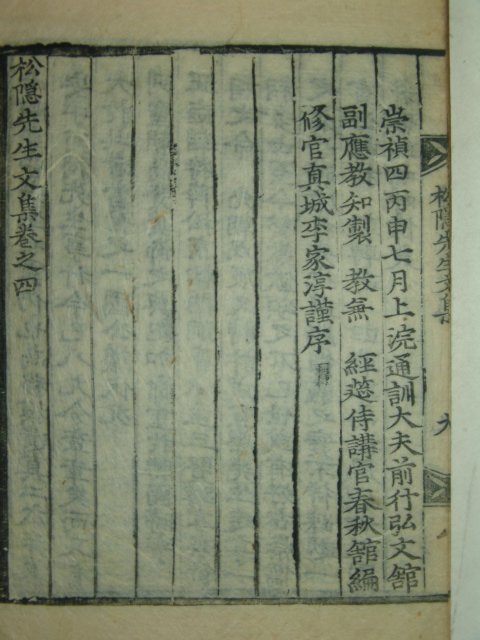 崇禎四丙申七月上浣通訓大夫前行弘文舘
副應教知製 教兼 經筵侍講官春秋舘編
修官真城李家淳謹序
松隠先生文集卷之四
松隠先生文集